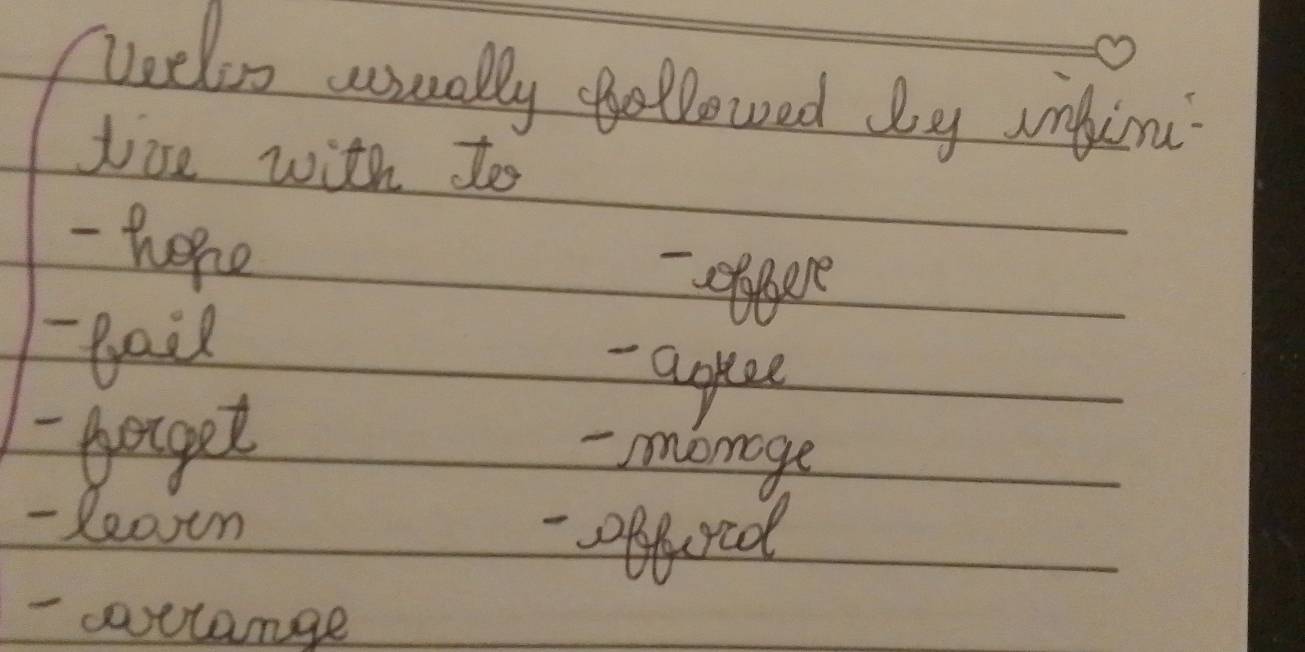 Verbs usually followed by infini-
tive with to
- hope
- offer
- fail
- agree
- forget
- manage
- learn
- afford
- arrange